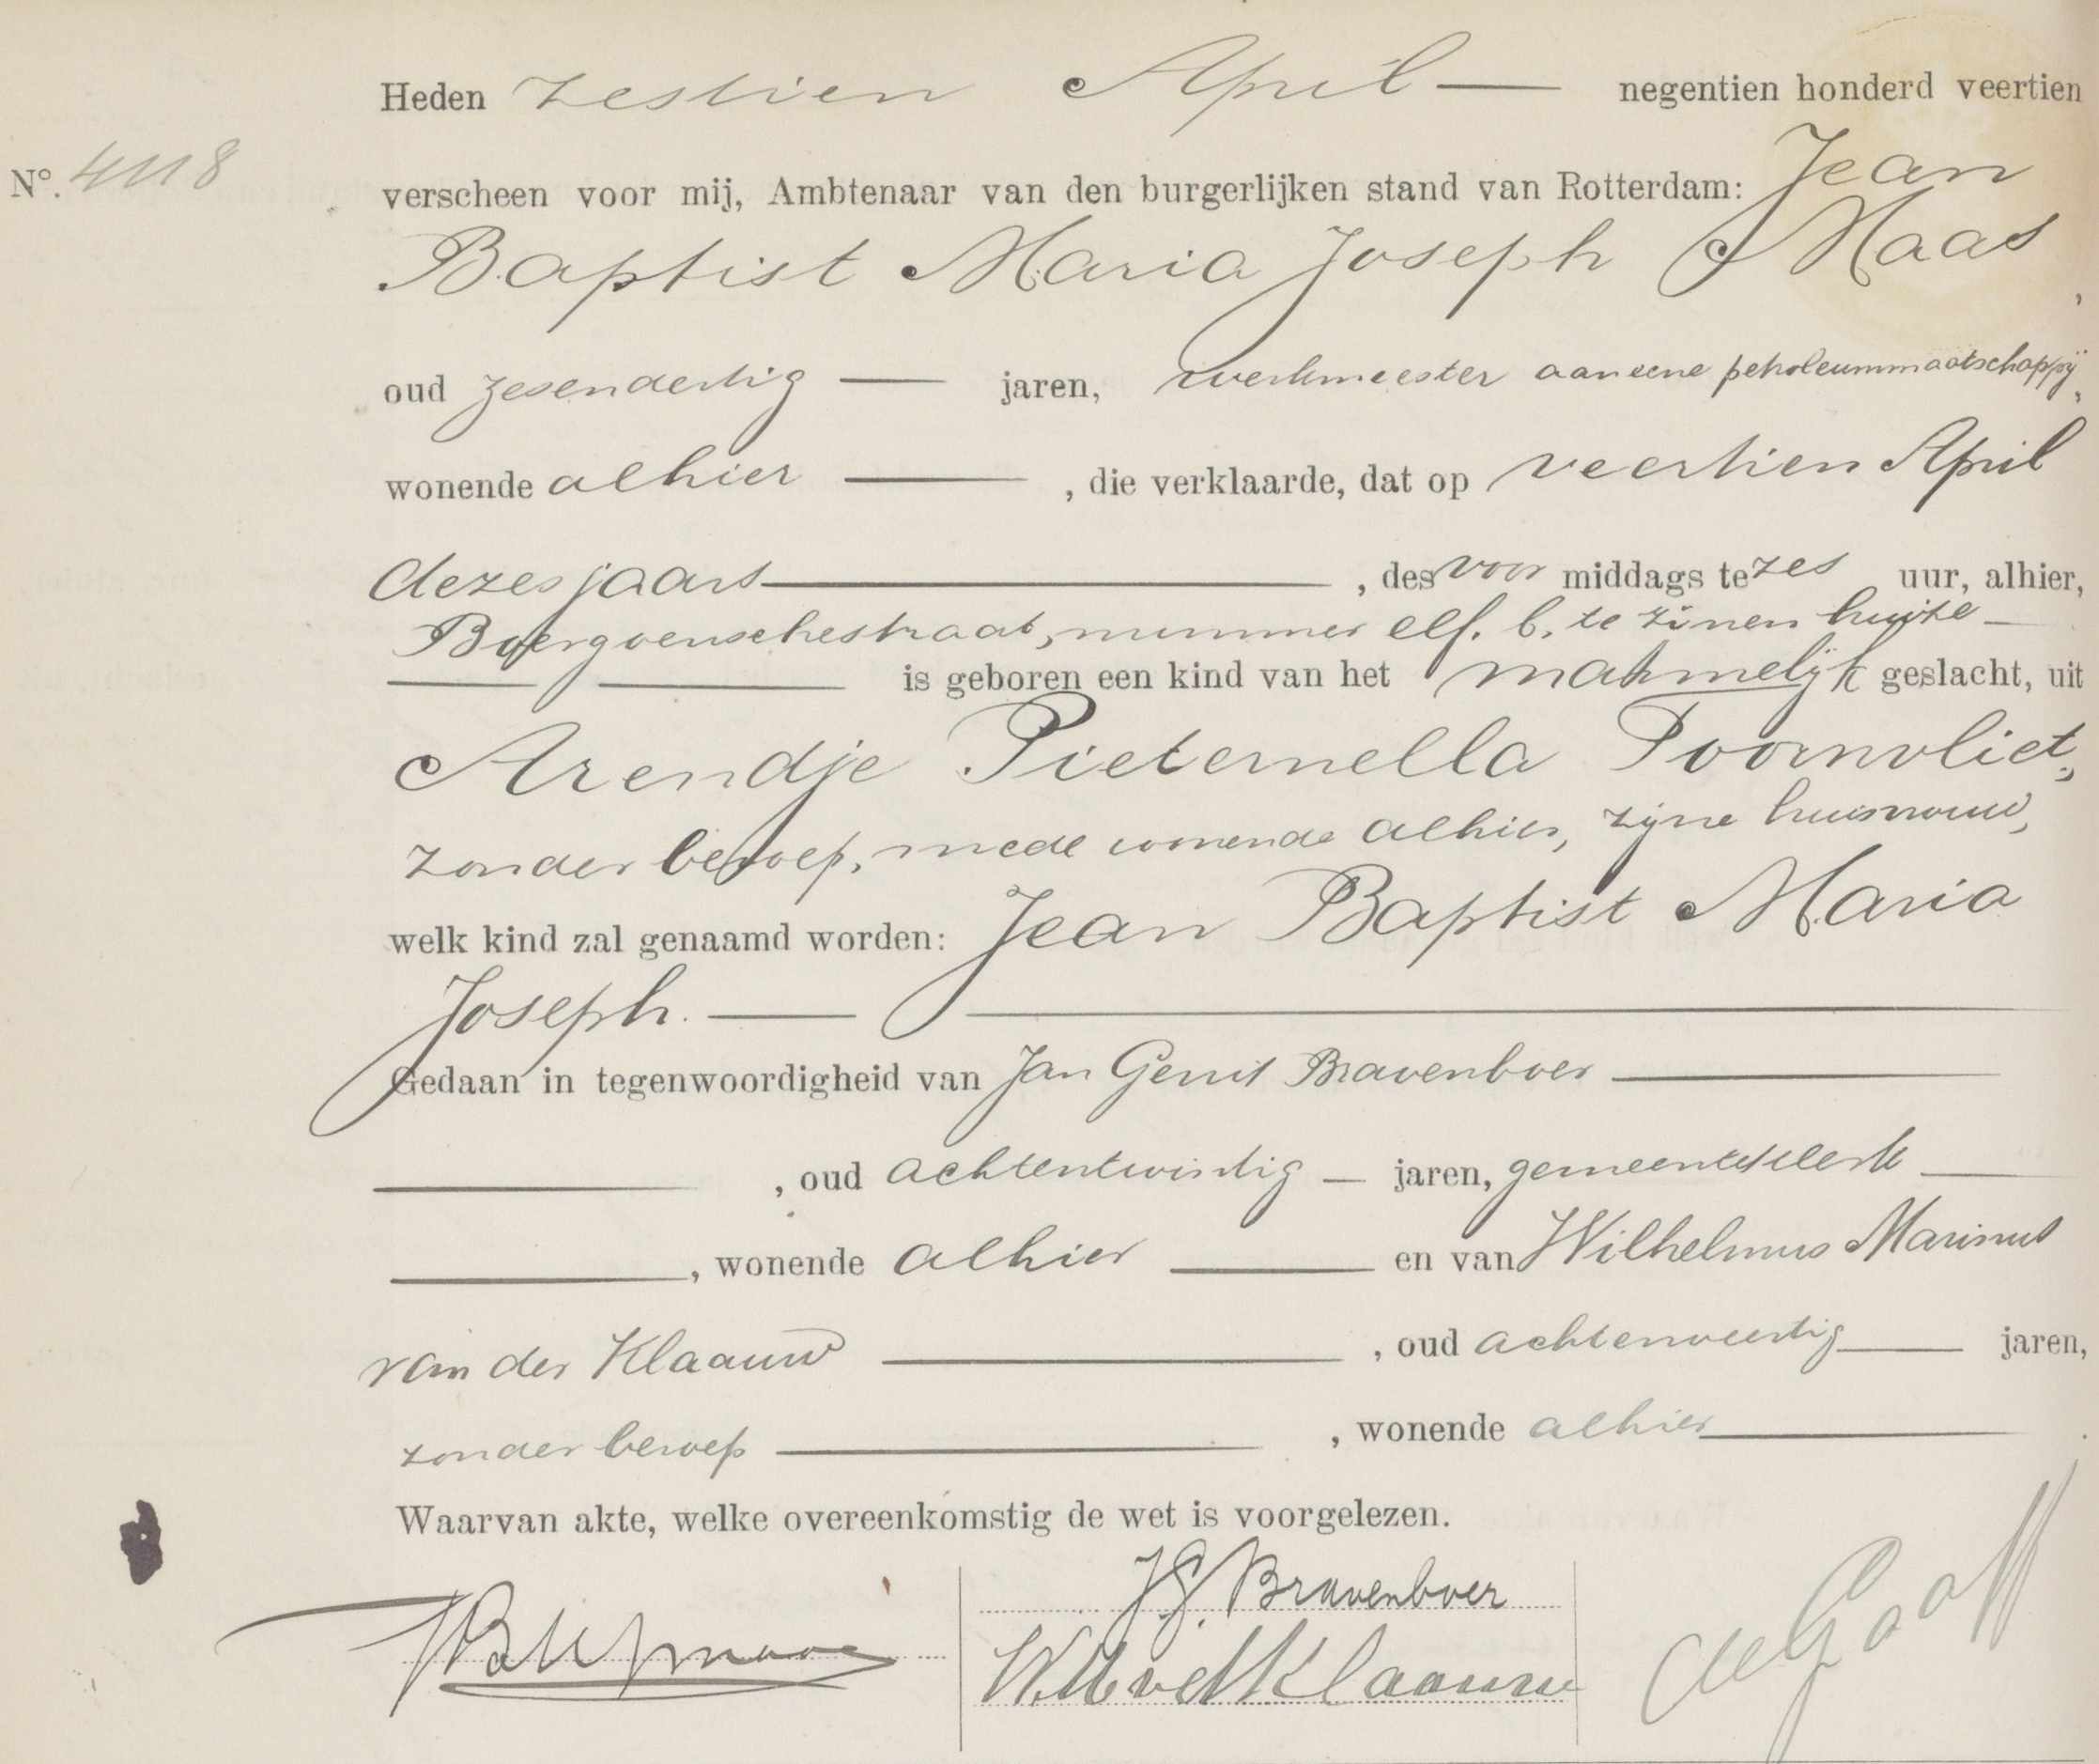 Heden zestien April — negentien honderd veertien
No. 4118
verscheen voor mij, Ambtenaar van den burgerlijken stand van Rotterdam: Jean
Baptist Maria Joseph Maas,
oud zesendertig — jaren, werkmeester aan eene petroleummaatschappij,
wonende alhier —, die verklaarde, dat op veertien April
dezes jaars —, des voor middags te zes uur, alhier,
Boergoenschestraat, nummer elf. b. te zijnen huize —
— is geboren een kind van het mannelijk geslacht, uit
Arendje Pieternella Toornvliet,
zonder beroep, mede wonende alhier, zijne huisvrouw,
welk kind zal genaamd worden: Jean Baptist Maria
Joseph. —
Gedaan in tegenwoordigheid van Jan Gerrit Bravenboer —
—, oud achtentwintig — jaren, gemeenteklerk —
—, wonende alhier — en van Wilhelmus Marinus
van der Klaauw —, oud achtenveertig — jaren,
zonder beroep —, wonende alhier —.
Waarvan akte, welke overeenkomstig de wet is voorgelezen.
J.G. Bravenboer
W.M vd Klaauw